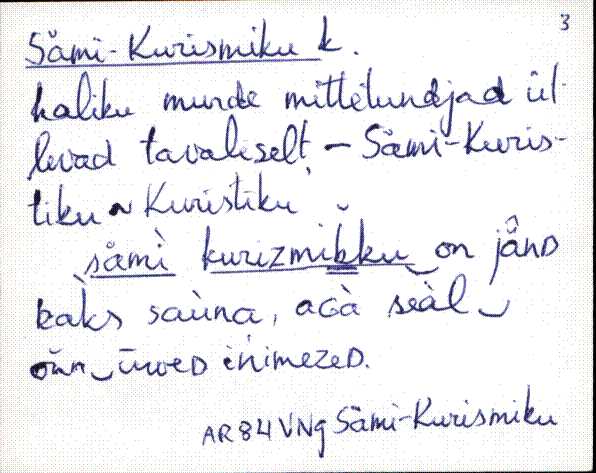 3
Sämi-Kurismiku k.
kaliku murde mittetundjad üt-
levad tavaliselt, – Sämi-Kuris-
tiku ~ Kuristiku
sämì kurizmikku on jänD
kaks saùna, aGà seàl
üweD inimezeD.
AR 84 VNg Sämi-Kurismiku